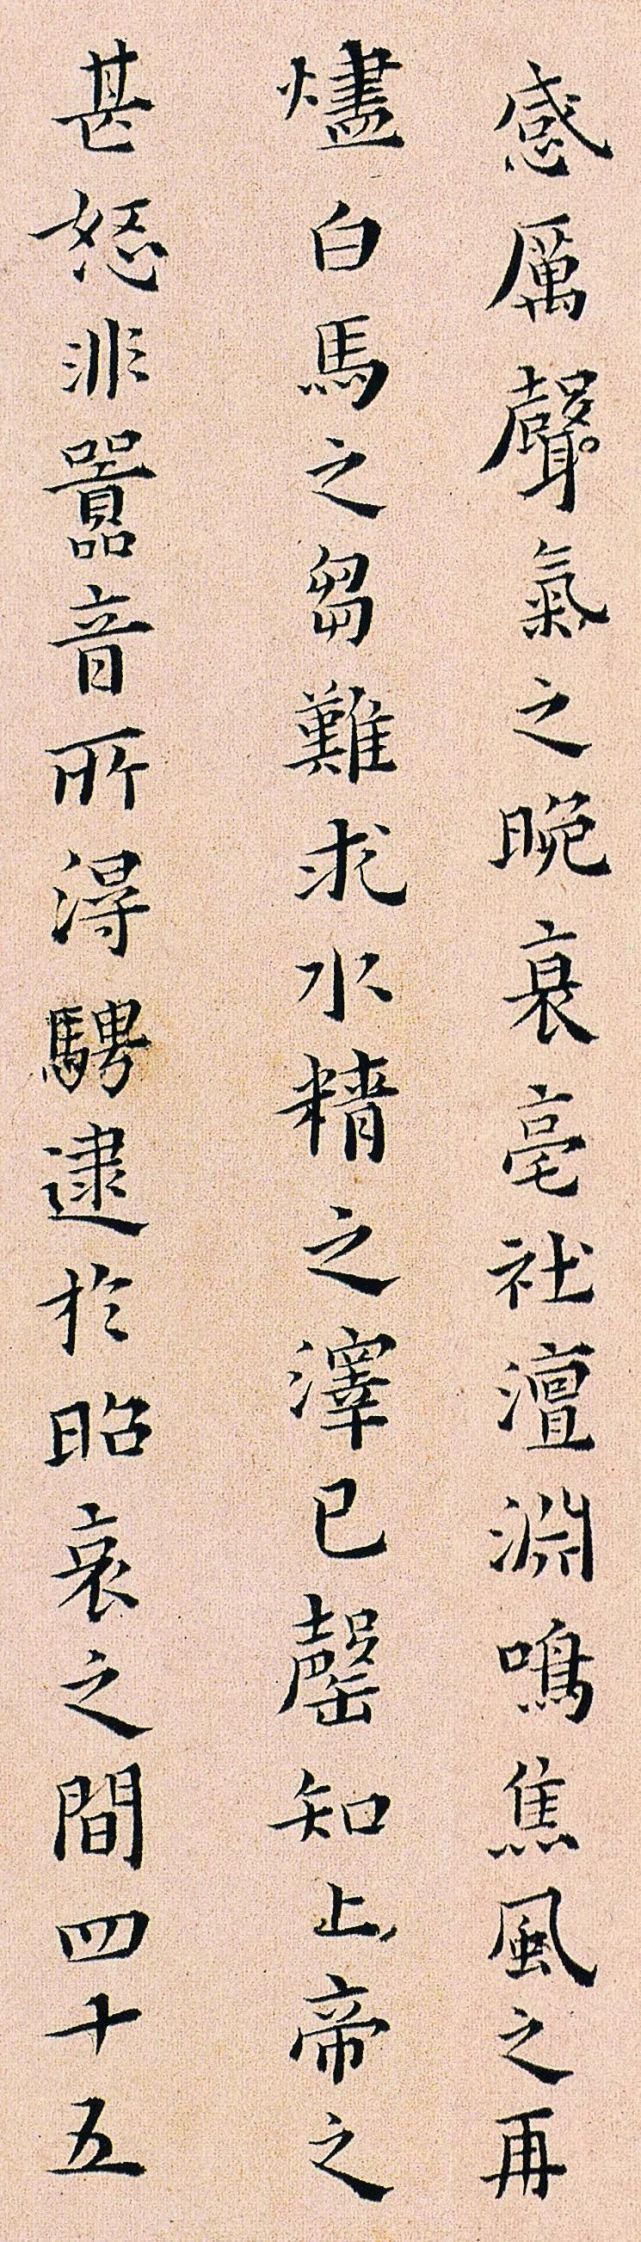 感厲聲氣之晚衰亳社澶淵鳴焦風之再
燼白馬之芻難求水精之澤已罄知上帝之
甚怒非囂音所得騁逮於昭哀之間四十五